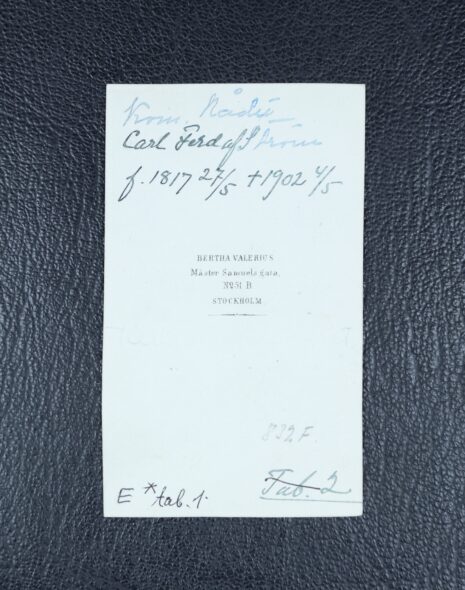 Kom. Råd
Carl Ferd af Ström
f. 1817 27/5 +1902 4/5
BERTHA VALERIUS
Mäster Samuels gata,
Nº 51 B
STOCKHOLM
832 F.
E * tab. 1.
Tab. 2